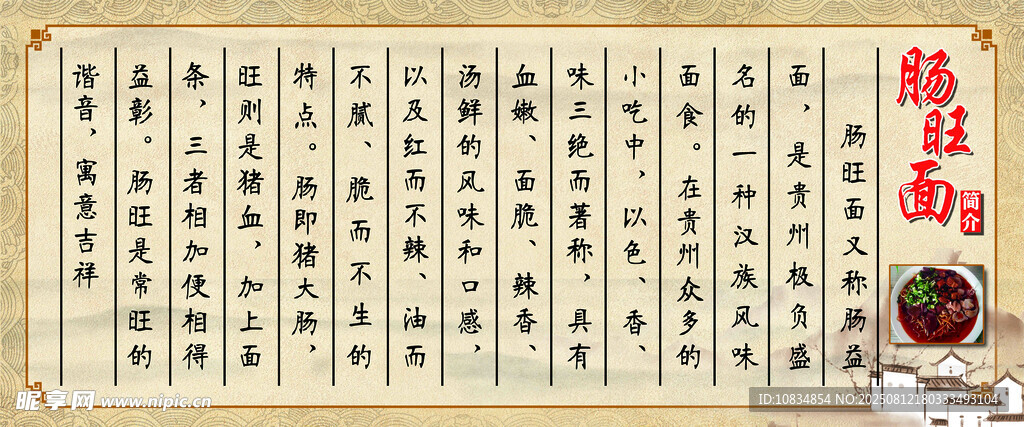 肠旺面
简介
肠旺面又称肠益
面，是贵州极负盛
名的一种汉族风味
面食。在贵州众多的
小吃中，以色、香、
味三绝而著称，具有
血嫩、面脆、辣香、
汤鲜的风味和口感，
以及红而不辣、油而
不腻、脆而不生的
特点。肠即猪大肠，
旺则是猪血，加上面
条，三者相加便相得
益彰。肠旺是常旺的
谐音，寓意吉祥
昵享网 www.nipic.cn
ID:10834854 NO:20250812180333493104